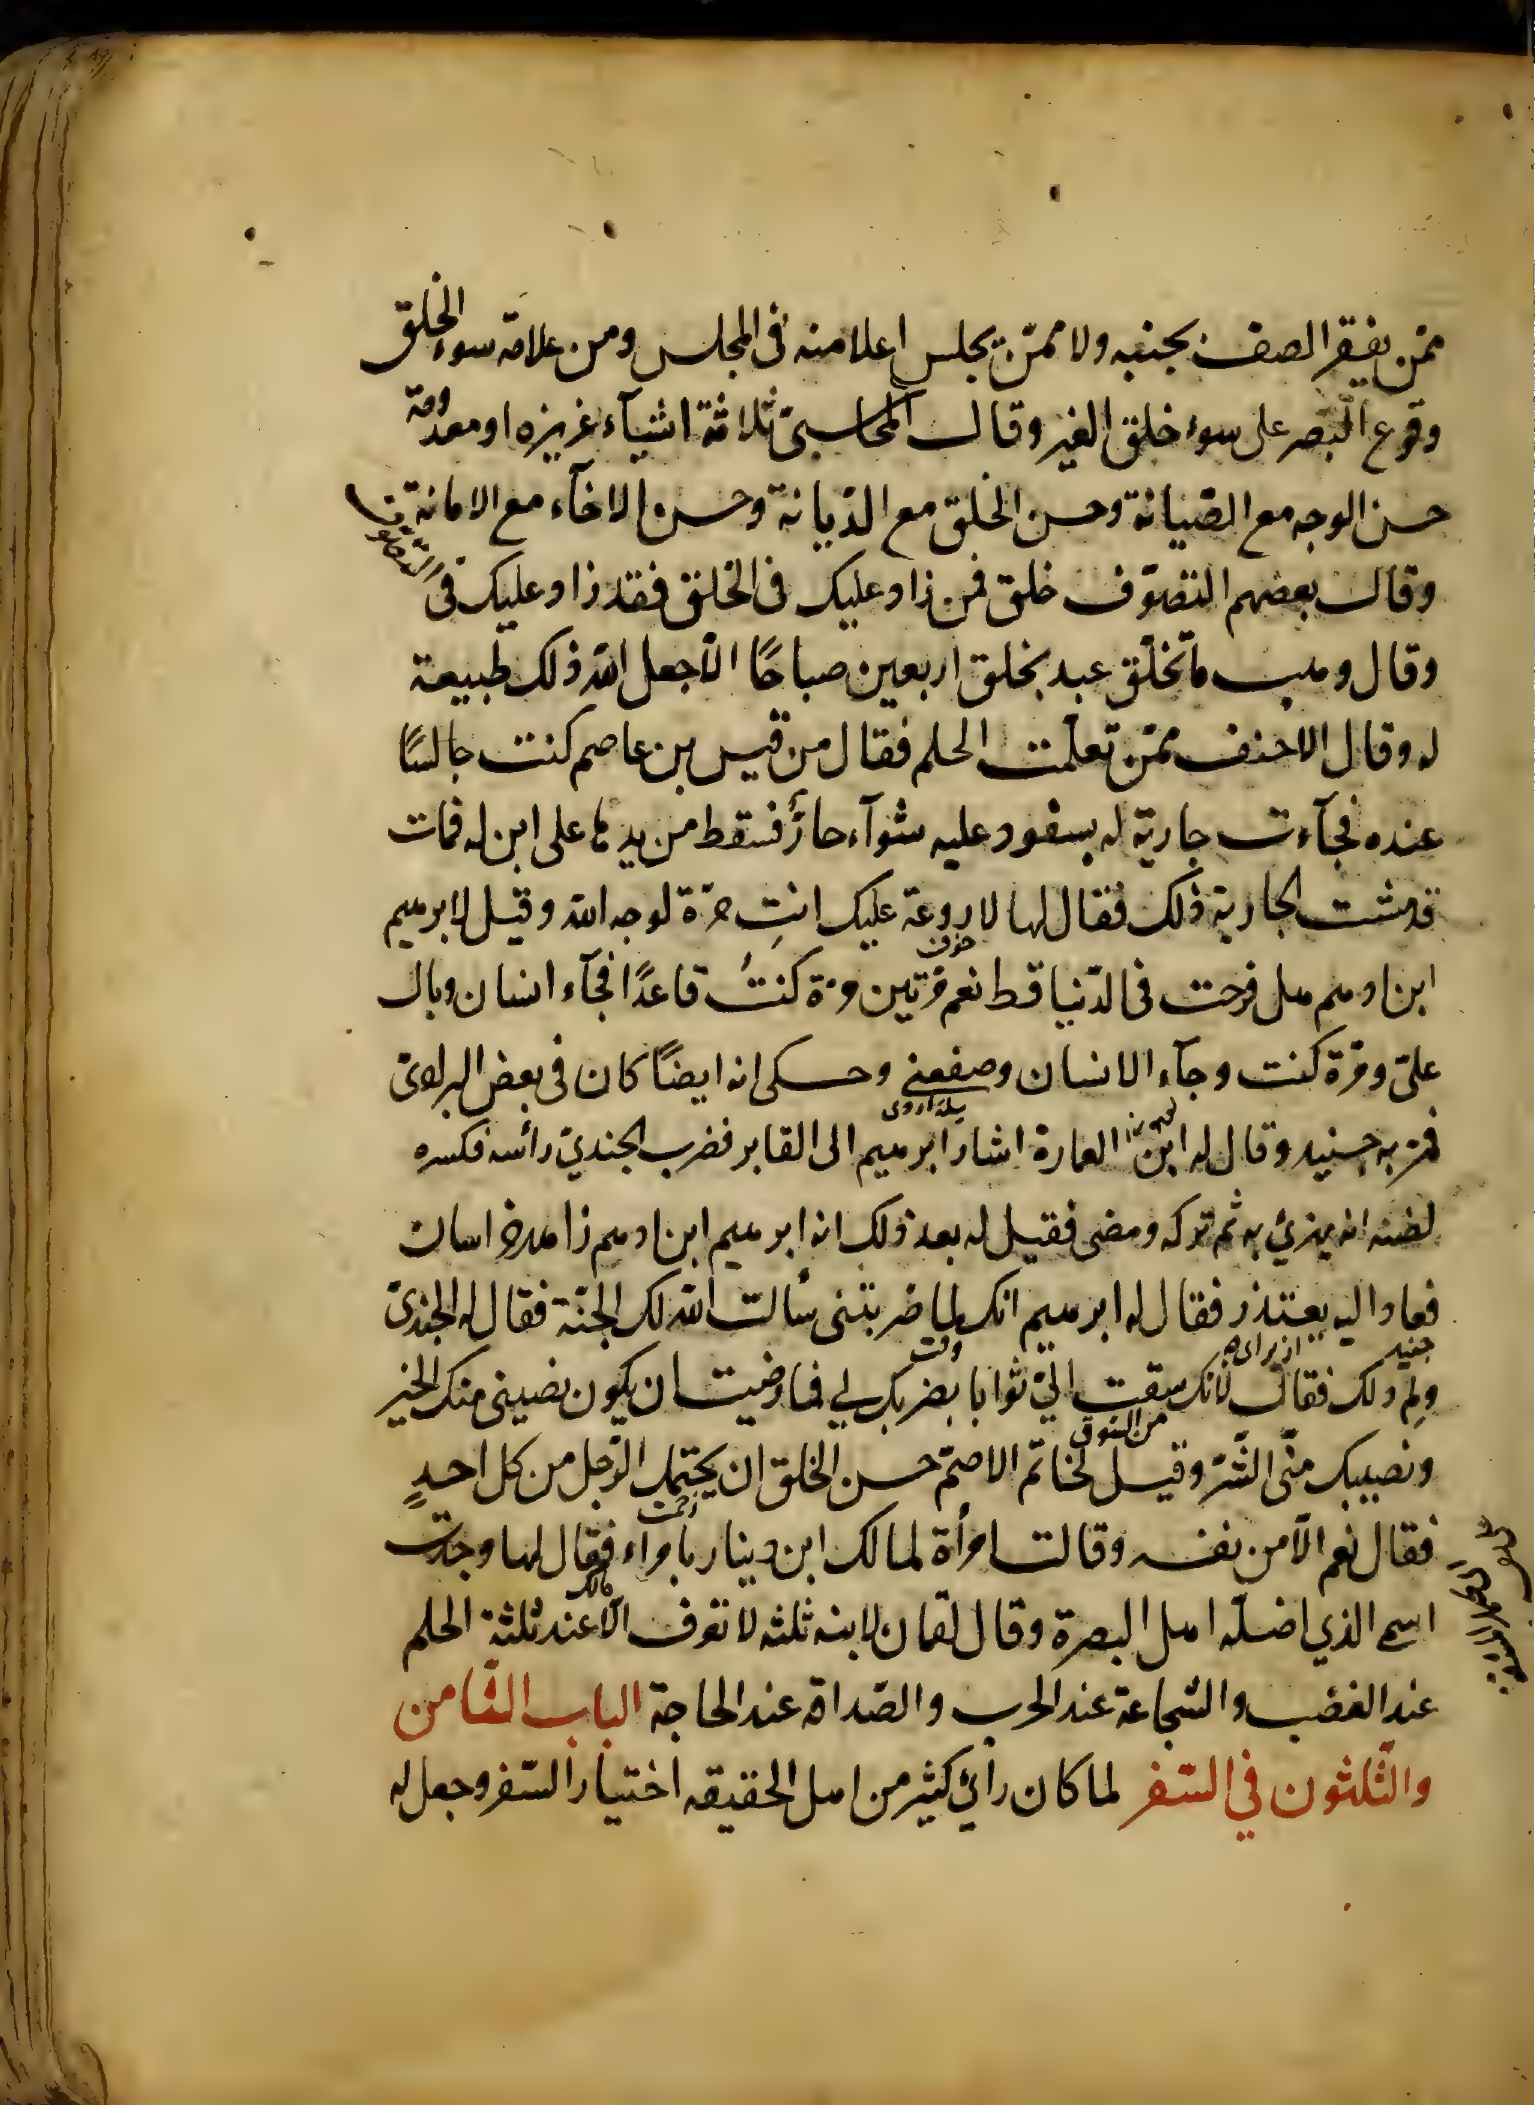 ممّن يفقر الصف بجنبه ولا ممّن يجلس اعلا منه في المجلس ومن علامة سوء الخلق
وقوع البصر على سوء خلق الغير وقال المحاسبيّ ثلاثة اشيآء عزيزه او معدومة
حسن الوجه مع الصّيانة وحسن الخلق مع الدّيانة وحسن الاخآء مع الامانة
وقال بعضهم التصوّف خلق فمن زاد عليك في الخلق فقد زاد عليك في التصوف
وقال وهب ما تخلّق عبد بخلق اربعين صباحًا الّا جعل الله ذلك طبيعة
له وقال الاحنف ممّن تعلّمت الحلم فقال من قيس بن عاصم كنت جالسًا
عنده فجآءت جارية له بسفود عليه شوآء حارّ فسقط من يدها على ابن له فمات
فدهشت الجارية ذلك فقال لها لا روعة عليك انتِ حرّة لوجه الله وقيل لابرهيم
خوف
ابن ادهم هل فرحت في الدّنيا قط نعم مرّتين مرة كنتُ قاعدًا فجآء انسان وبال
عليّ ومرّة كنت وجآء الانسان وصفعني وحكى انه ايضًا كان في بعض البرادى
فمرّ به جنيد وقال له اين العمارة اشار ابرهيم الى القابر فضرب الجنديّ رأسه فكسره
لضنه انه يهزئ به ثم تركه ومضى فقيل له بعد ذلك انه ابرهيم ابن ادهم زاهد خراسان
فعاد اليه يعتذر فقال له ابرهيم انك لما ضربتنى سألت الله لك الجنّة فقال له الجندىّ
جنيد
وقت
ولِم ذلك فقال لانك سقت اليّ ثوابا بضربك لي فما رضيت ان يكون نصيبي منك الخير
من السوق
ونصيبك منّى الشّرّ وقيل لخاتم الاصمّ حسن الخلق ان يحتمل الرّجل من كل احدٍ
فقال نعم الّا من نفسه وقالت امرأة لمالك ابن دينار يا مراء فقال لها وجدت
مالك
اسمي الذي اضلّه اهل البصرة وقال لقمان لابنه ثلثه لا تعرف الّا عند ثلثة الحلم
عند الغضب والشجاعة عند الحرب والصّداقة عند الحاجة الباب الثّامن
والثّلثون في السّفر لما كان رأيُ كثير من اهل الحقيقه اختيار السّفر وجعل له